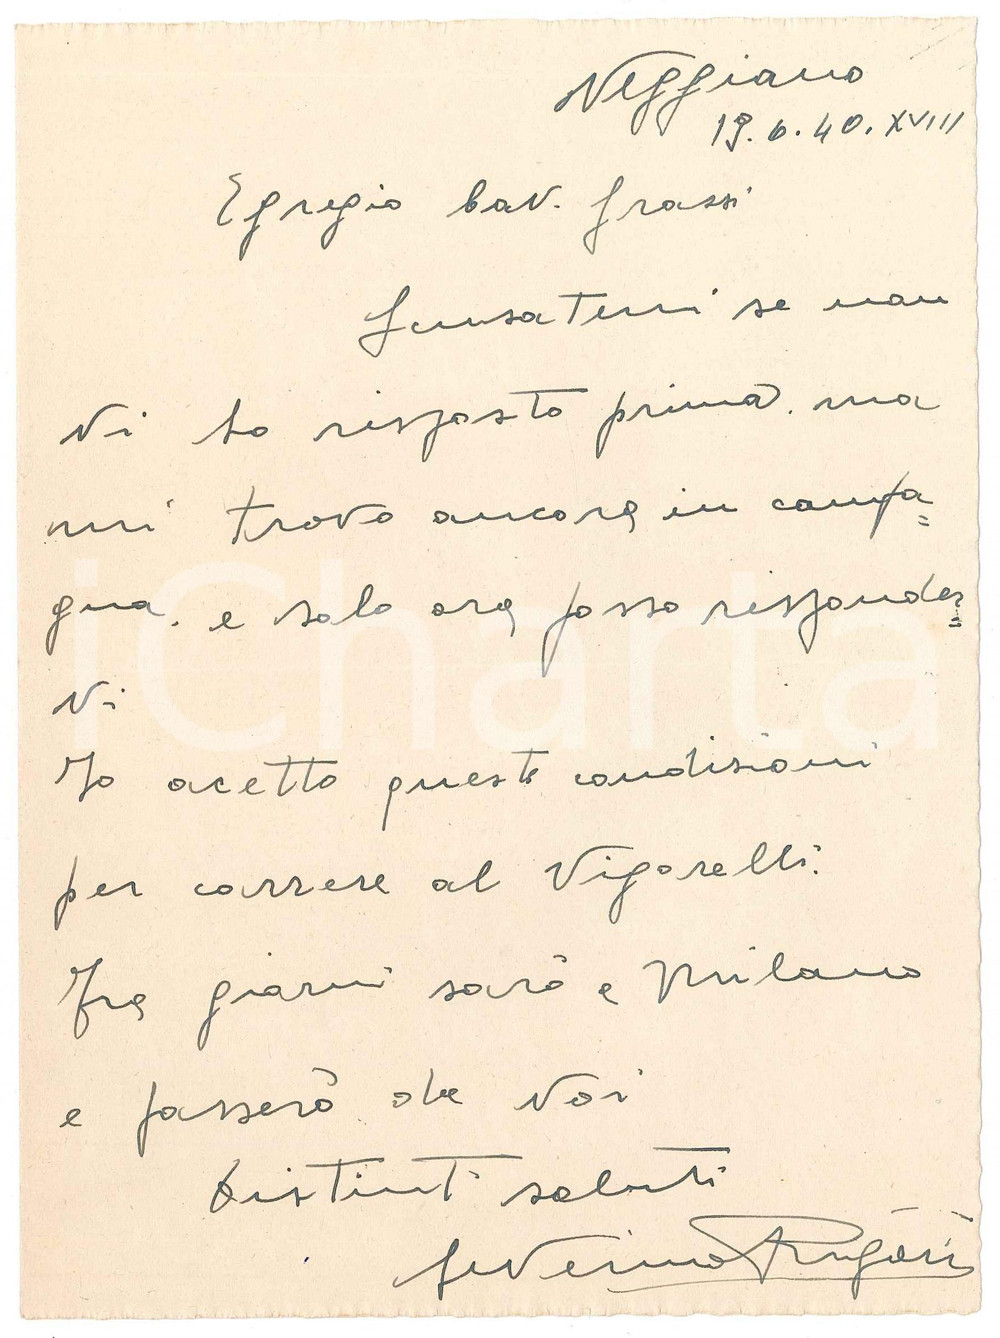 Veggiano
19.6.40.XVIII
Egregio Cav. Grassi
Scusatemi se non
Vi ho risposto prima. ma
mi trovo ancora in campa=
gna. e solo ora posso risponder=
Vi
Io acetto queste condisioni
per correre al Vigorelli.
Fra giorni sarò a Milano
e passerò da Voi
Distinti saluti
Severino Rigoni
iCharta